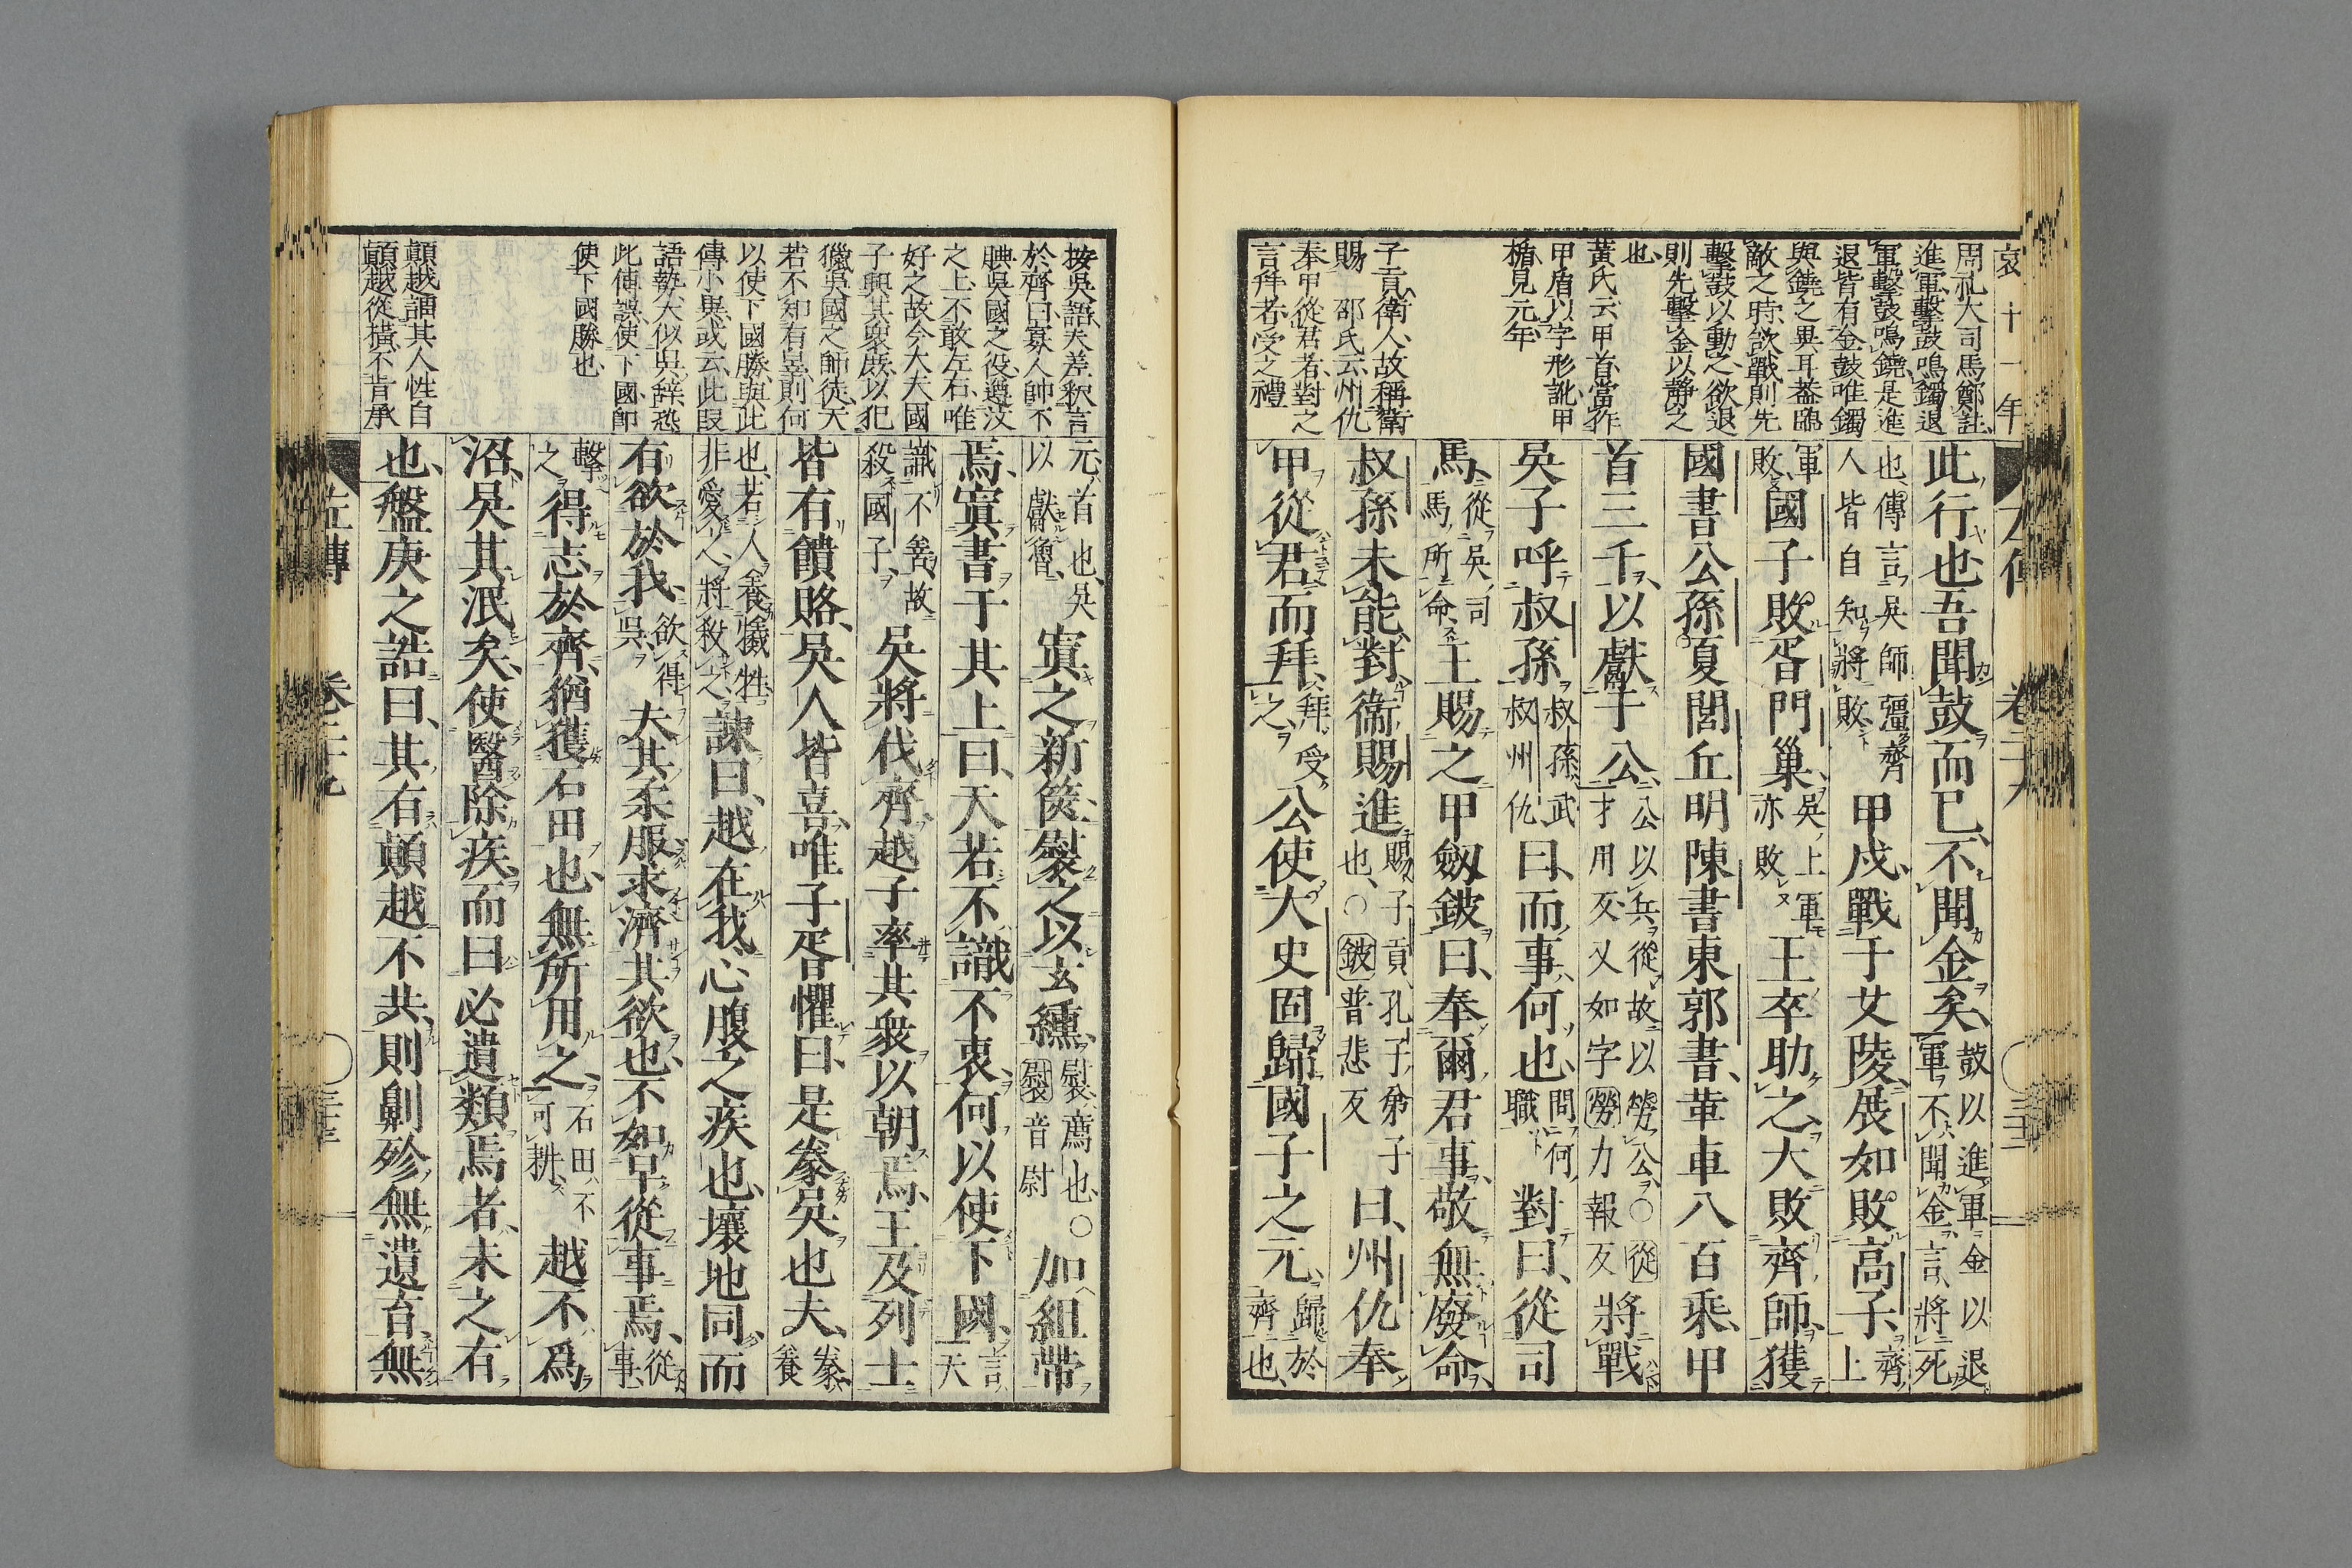 哀十一年
周礼大司馬鄭註
進軍擊鼓鳴鐲退
軍擊鼓鳴鐃是進
退皆有金鼓唯鐲
與鐃之異耳盖臨
敵之時欲戰則先
擊鼓以動之欲退
則先擊金以靜之
也
黃氏云甲首當作
甲盾以字形訛甲
楯見元年
子貢衛人故稱衛
賜　邵氏云州仇
奉甲從君者對之
言拜者受之禮
此行也吾聞鼓而已不聞金矣鼓以進軍金以退軍不聞金言將死
也傳言吳師彊齊人皆自知將敗甲戌戰于艾陵展如敗高子齊上
軍敗國子敗胥門巢吳上軍亦敗王卒助之大敗齊師獲
國書公孫夏閭丘明陳書東郭書革車八百乘甲
首三千以獻于公公以兵從故以勞公○從才用反又如字勞力報反將戰
吳子呼叔孫叔孫武叔州仇曰而事何也問何職對曰從司
馬從吳司馬所命王賜之甲劔鈹曰奉爾君事敬無廢命
叔孫未能對衞賜進賜子貢孔子弟子也○鈹普悲反曰州仇奉
甲從君而拜拜受之公使大史固歸國子之元歸於齊也
按吳語夫差釈言
於齊曰寡人帥不
腆吳國之役遵汶
之上不敢左右唯
好之故今大夫國
子興其衆庶以犯
獵吳國之師徒天
若不知有辠則何
以使下國勝與此
傳小異或云此段
語勢大似吳辭恐
此傳誤使下國卽
使下國勝也
顛越謂其人性自
顛越從橫不肯承
元首也吳以獻魯寘之新篋褽之以玄纁褽薦也○褽音尉加組帶
焉寘書于其上曰天若不識不衷何以使下國言天
識不善故殺國子吳將伐齊越子率其衆以朝焉王及列士
皆有饋賂吳人皆喜唯子胥懼曰是豢吳也夫豢養
也若人養犧牲非愛之將殺之諫曰越在我心腹之疾也壤地同而
有欲於我欲得吳夫其柔服求濟其欲也不如早從事焉從事
擊之得志於齊猶獲石田也無所用之石田不可耕越不爲
沼吳其泯矣使醫除疾而曰必遺類焉者未之有
也盤庚之誥曰其有顛越不共則劓殄無遺育無
左傳　卷二十九